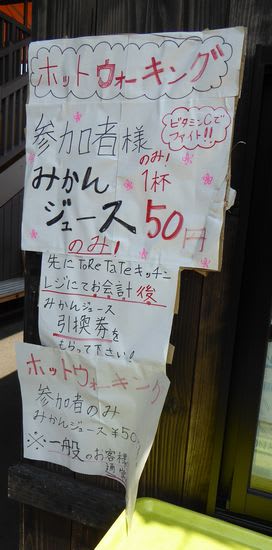 ホットウォーキング
参加者様
ビタミンCで
ファイト!!
のみ!
みかん 1杯
ジュース 50円
のみ!
先に ToReTaTeキッチン
レジにてお会計後
みかんジュース
引換券を
もらって下さい!
ホットウォーキング
参加者のみ
みかんジュース ¥50
※一般のお客様
通常